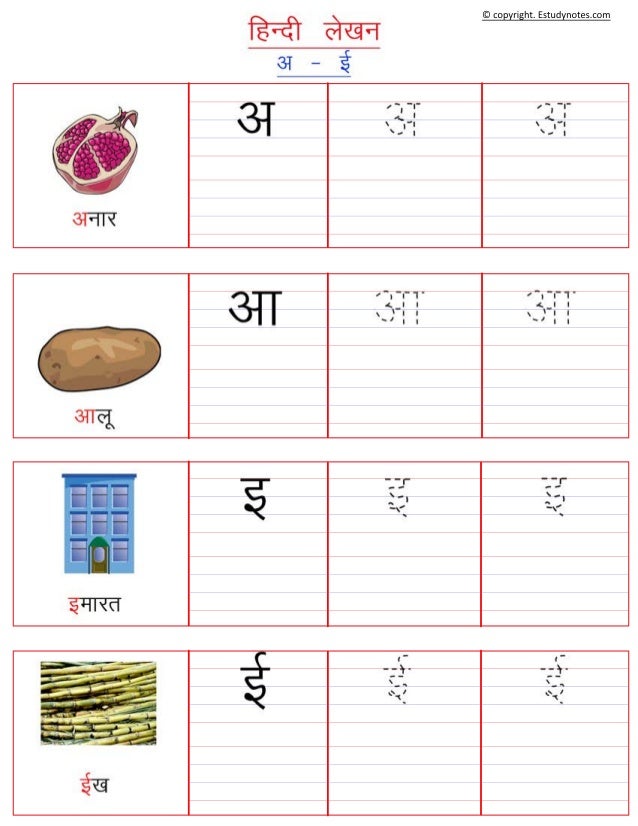 © copyright. Estudynotes.com
हिन्दी लेखन
अ - ई
अ अ अ
अनार
आ आ आ
आलू
इ इ इ
इमारत
ई ई ई
ईख